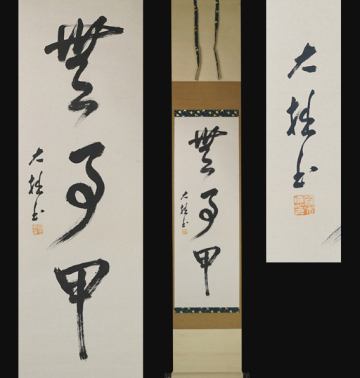 無事甲
大書
無事甲
大書
大書